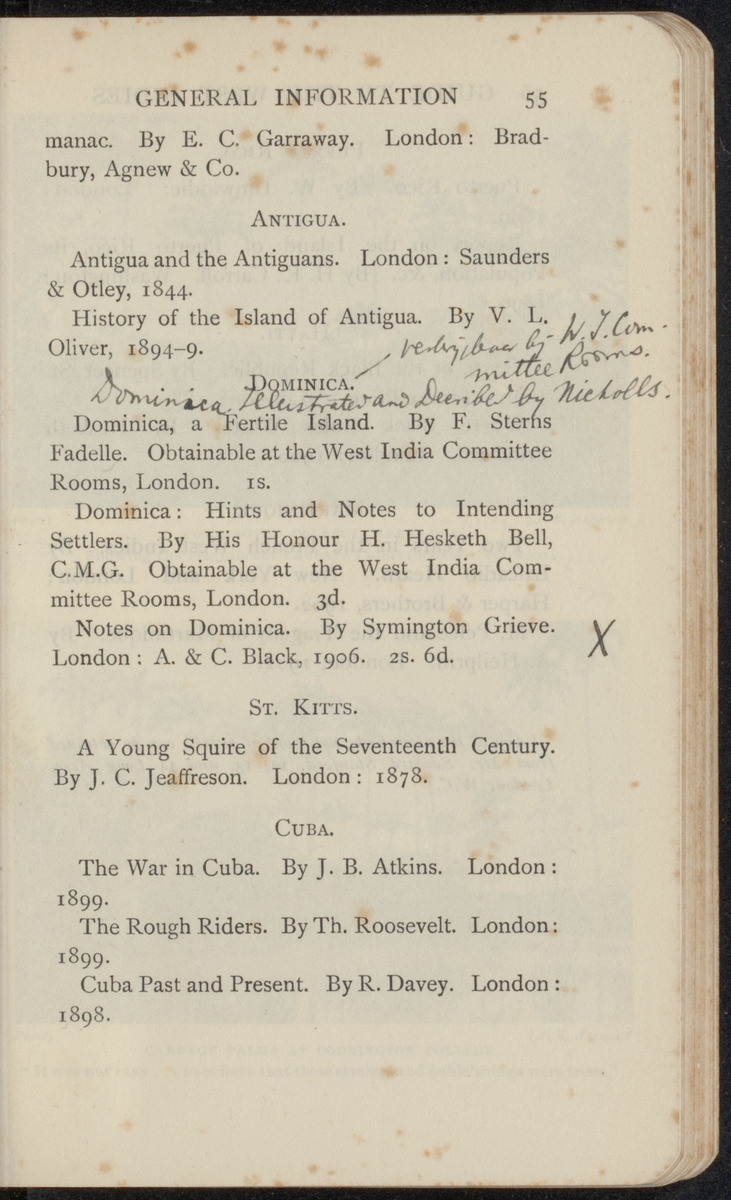 GENERAL INFORMATION 55
manac. By E. C. Garraway. London: Brad-
bury, Agnew & Co.
ANTIGUA.
Antigua and the Antiguans. London: Saunders
& Otley, 1844.
History of the Island of Antigua. By V. L.
Oliver, 1894-9.
by W. I. Com-
mittee Rooms.
DOMINICA.
Dominica Illustrated and Decribed by Nicholls.
Dominica, a Fertile Island. By F. Sterns
Fadelle. Obtainable at the West India Committee
Rooms, London. 1s.
Dominica: Hints and Notes to Intending
Settlers. By His Honour H. Hesketh Bell,
C.M.G. Obtainable at the West India Com-
mittee Rooms, London. 3d.
Notes on Dominica. By Symington Grieve. X
London: A. & C. Black, 1906. 2s. 6d.
ST. KITTS.
A Young Squire of the Seventeenth Century.
By J. C. Jeaffreson. London: 1878.
CUBA.
The War in Cuba. By J. B. Atkins. London:
1899.
The Rough Riders. By Th. Roosevelt. London:
1899.
Cuba Past and Present. By R. Davey. London:
1898.